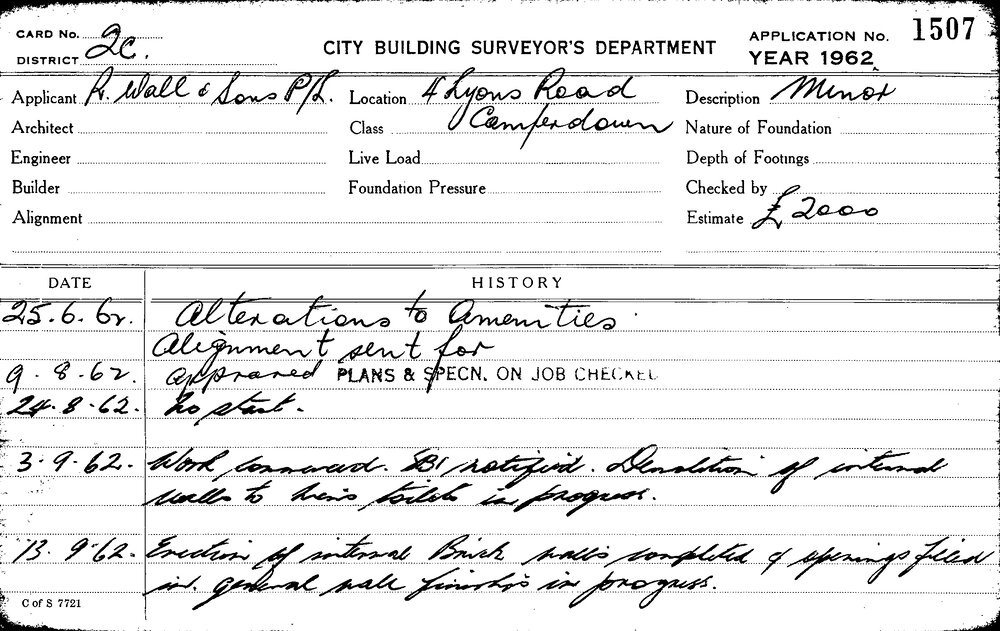 CARD No. 2c.
DISTRICT
CITY BUILDING SURVEYOR'S DEPARTMENT
APPLICATION No. 1507
YEAR 1962
Applicant R. Wall & Sons P/L. Location 4 Lyons Road Description Minor
Architect Class Camperdown Nature of Foundation
Engineer Live Load Depth of Footings
Builder Foundation Pressure Checked by
Alignment Estimate £2000
DATE HISTORY
25.6.62. Alterations to Amenities.
Alignment sent for
9.8.62. approved PLANS & SPECN. ON JOB CHECKED
24.8.62. No start.
3.9.62. Work commenced. BI notified. Demolition of internal
walls to men's toilets in progress.
13.9.62. Erection of internal Brick walls completed & openings filled
in. general wall finishes in progress.
C of S 7721